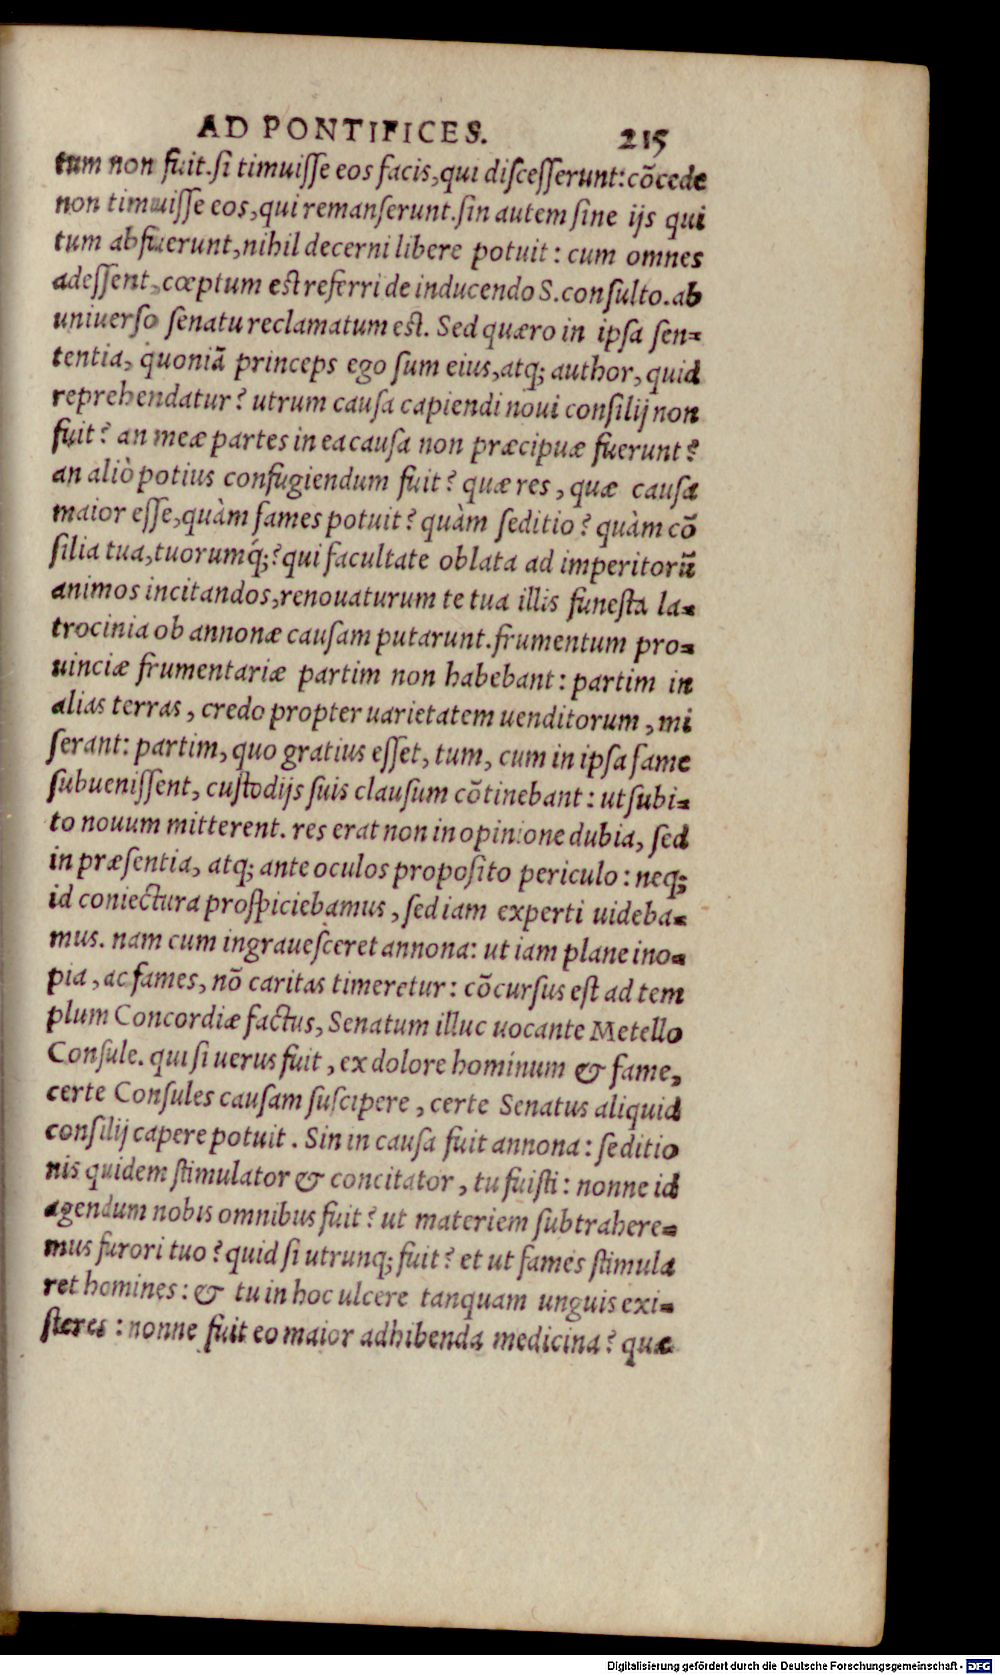 AD PONTIFICES. 215
tum non fuit. si timuisse eos facis, qui discesserunt: cõcede
non timuisse eos, qui remanserunt. sin autem sine ijs qui
tum abfuerunt, nihil decerni libere potuit: cum omnes
adessent, cœptum est referri de inducendo S. consulto. ab
uniuerso senatu reclamatum est. Sed quæro in ipsa sen=
tentia, quoniã princeps ego sum eius, atq; author, quid
reprehendatur? utrum causa capiendi noui consilij non
fuit? an meæ partes in ea causa non præcipuæ fuerunt?
an aliò potius confugiendum fuit? quæ res, quæ causa
maior esse, quàm fames potuit? quàm seditio? quàm cõ
silia tua, tuorumq́;? qui facultate oblata ad imperitorũ
animos incitandos, renouaturum te tua illis funesta la=
trocinia ob annonæ causam putarunt. frumentum pro=
uinciæ frumentariæ partim non habebant: partim in
alias terras, credo propter uarietatem uenditorum, mi
serant: partim, quo gratius esset, tum, cum in ipsa fame
subuenissent, custodijs suis clausum cõtinebant: ut subi=
to nouum mitterent. res erat non in opinione dubia, sed
in præsentia, atq; ante oculos proposito periculo: neq;
id coniectura prospiciebamus, sed iam experti uideba=
mus. nam cum ingrauesceret annona: ut iam plane ino=
pia, ac fames, nõ caritas timeretur: cõcursus est ad tem
plum Concordiæ factus, Senatum illuc uocante Metello
Consule. qui si uerus fuit, ex dolore hominum & fame,
certe Consules causam suscipere, certe Senatus aliquid
consilij capere potuit. Sin in causa fuit annona: seditio
nis quidem stimulator & concitator, tu fuisti: nonne id
agendum nobis omnibus fuit? ut materiem subtrahere=
mus furori tuo? quid si utrunq; fuit? et ut fames stimula
ret homines: & tu in hoc ulcere tanquam unguis exi=
steres: nonne fuit eo maior adhibenda medicina? quæ
Digitalisierung gefördert durch die Deutsche Forschungsgemeinschaft - DFG